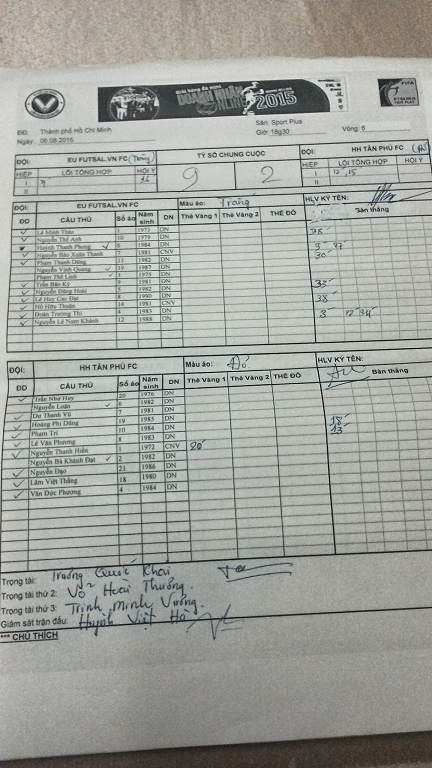 Giải bóng đá mini
DOANH NHÂN
2015
FIFA
ĐĐ: Thành phố Hồ Chí Minh
Sân: Sport Plus
Ngày: 06.06.2015
Giờ: 18g30
Vòng: 6
ĐỘI: EU FUTSAL.VN FC (Trắng)
TỶ SỐ CHUNG CUỘC
ĐỘI: HH TÂN PHÚ FC
HIỆP LỖI TỔNG HỢP HỘI Ý
9 2
HIỆP LỖI TỔNG HỢP HỘI Ý
I
I 12, 15
II
II
ĐỘI: EU FUTSAL.VN FC Màu áo: Trắng HLV KÝ TÊN:
ĐD CẦU THỦ Số áo Năm sinh DN Thẻ Vàng 1 Thẻ Vàng 2 THẺ ĐỎ Bàn thắng
Lê Minh Thảo 1 1973 DN
Nguyễn Thế Anh 10 1979 DN
Huỳnh Thanh Phong 6 1984 DN
Nguyễn Bảo Xuân Thanh 7 1981 CNV 30
Phạm Thanh Dũng 11 1982 DN
Nguyễn Vinh Quang 19 1987 DN
Phạm Thế Linh 3 1975 DN
Trần Bảo Ký 9 1981 DN 33
Nguyễn Đăng Hoài 5 1982 DN
Lê Huy Cao Đạt 8 1990 DN 38
Hồ Hữu Thuận 14 1981 CNV
Đoàn Trường Thi 4 1983 DN
Nguyễn Lê Nam Khánh 12 1988 DN
ĐỘI: HH TÂN PHÚ FC Màu áo: Đỏ HLV KÝ TÊN:
ĐD CẦU THỦ Số áo Năm sinh DN Thẻ Vàng 1 Thẻ Vàng 2 THẺ ĐỎ Bàn thắng
Trần Như Huy 20 1976 DN
Nguyễn Luận 6 1982 DN
Dư Thanh Vũ 7 1981 DN
Hoàng Phi Dũng 19 1985 DN 18
Phạm Trí 10 1984 DN 13
Lê Văn Phương 8 1983 DN
Nguyễn Thanh Hiền 1 1972 CNV 20
Nguyễn Bá Khánh Đạt 2 1982 DN
Nguyễn Đạo 21 1986 DN
Lâm Việt Thắng 18 1980 DN
Văn Đức Phương 4 1984 DN
Trọng tài: Trương Quốc Khải
Trọng tài thứ 2: Võ Hoài Thương.
Trọng tài thứ 3: Trịnh Minh Vương.
Giám sát trận đấu: Huỳnh Việt Hà
*** CHÚ THÍCH